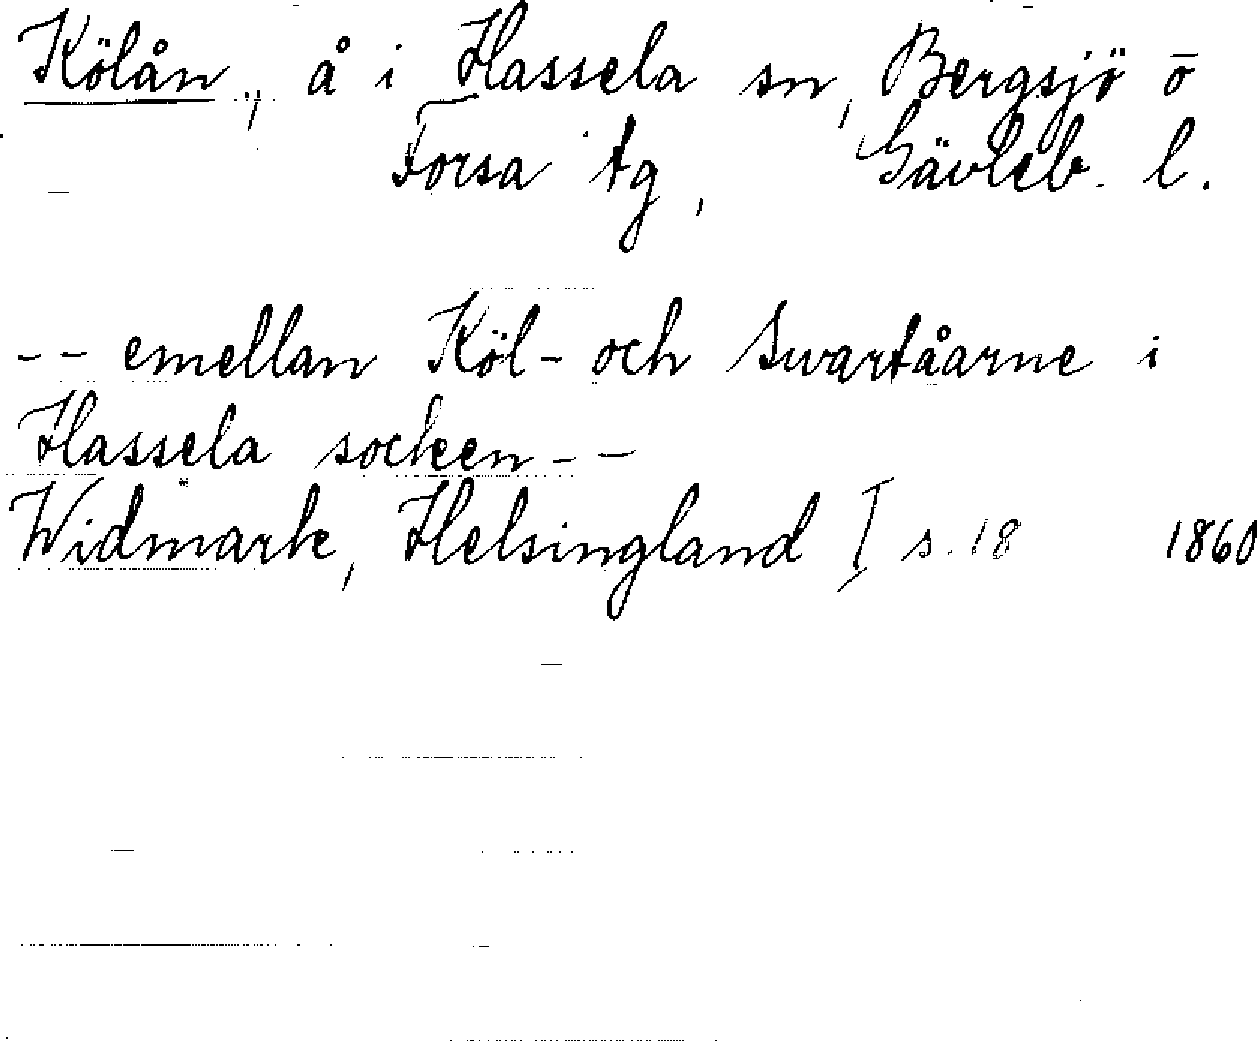 Kölån, å i Hassela sn, Bergsjö o
Forsa tg, Gävleb. l.
-- emellan Köl- och Swartåarne i
Hassela socken--
Widmark, Helsingland I s. 18 1860